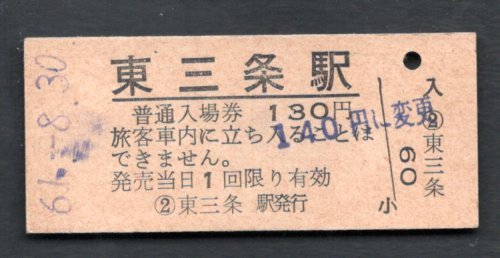 61.-8.30
東三条駅
普通入場券 130円
140円に変更
旅客車内に立ち入ることは
できません。
発売当日1回限り有効
②東三条 駅発行
小
入②東三条
09